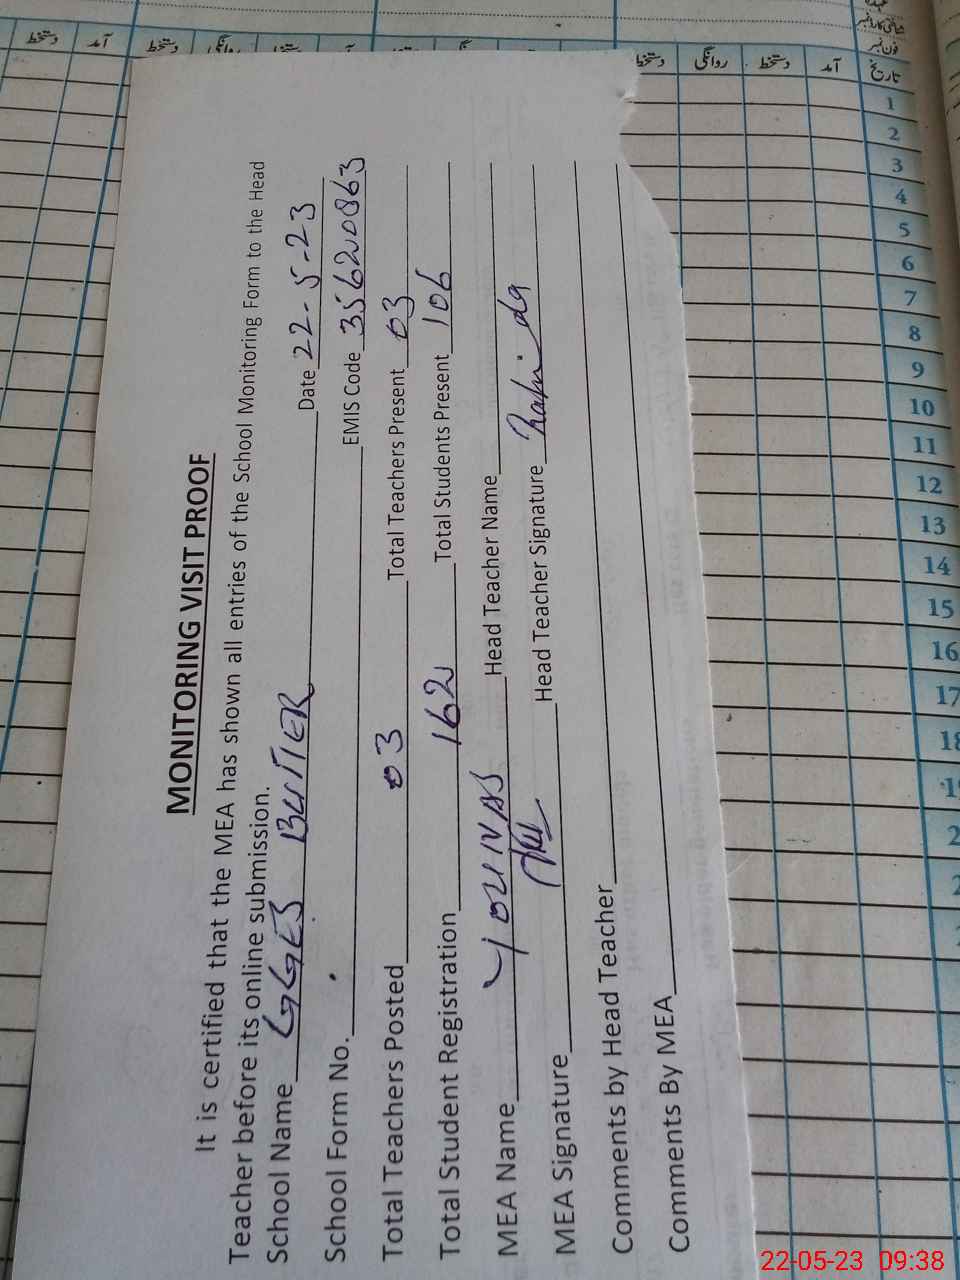 دستخط آمد دستخط روانگی
شناختی کارڈ نمبر
فون نمبر
دستخط روانگی دستخط آمد تاریخ
1
2
3
4
5
6
7
8
9
10
11
12
13
14
15
16
17
18
MONITORING VISIT PROOF
It is certified that the MEA has shown all entries of the School Monitoring Form to the Head
Teacher before its online submission.
School Name GGES BUTTER Date 22-5-23
School Form No. EMIS Code 35620863
Total Teachers Posted 03 Total Teachers Present 03
Total Student Registration 162 Total Students Present 106
MEA Name YOUNAS Head Teacher Name
MEA Signature Head Teacher Signature
Comments by Head Teacher
Comments By MEA
22-05-23 09:38